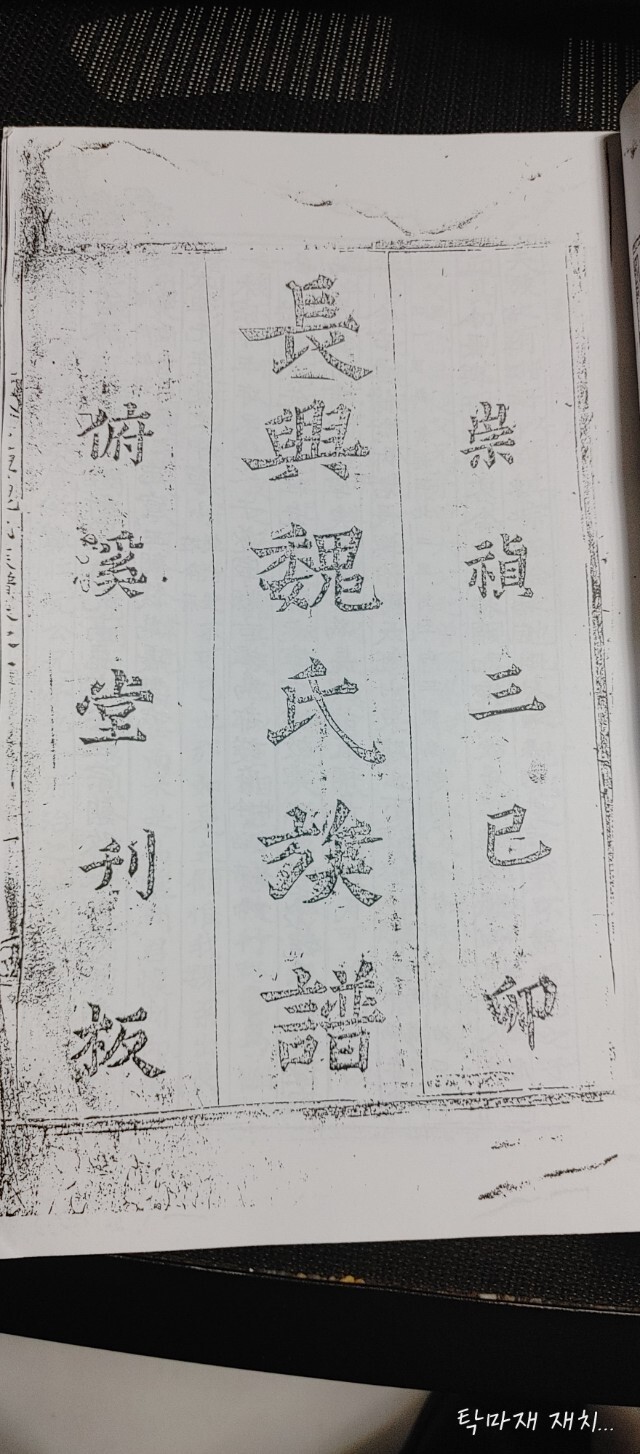 崇禎三己卯
長興魏氏族譜
俯溪堂刊板
탁마재 재치...